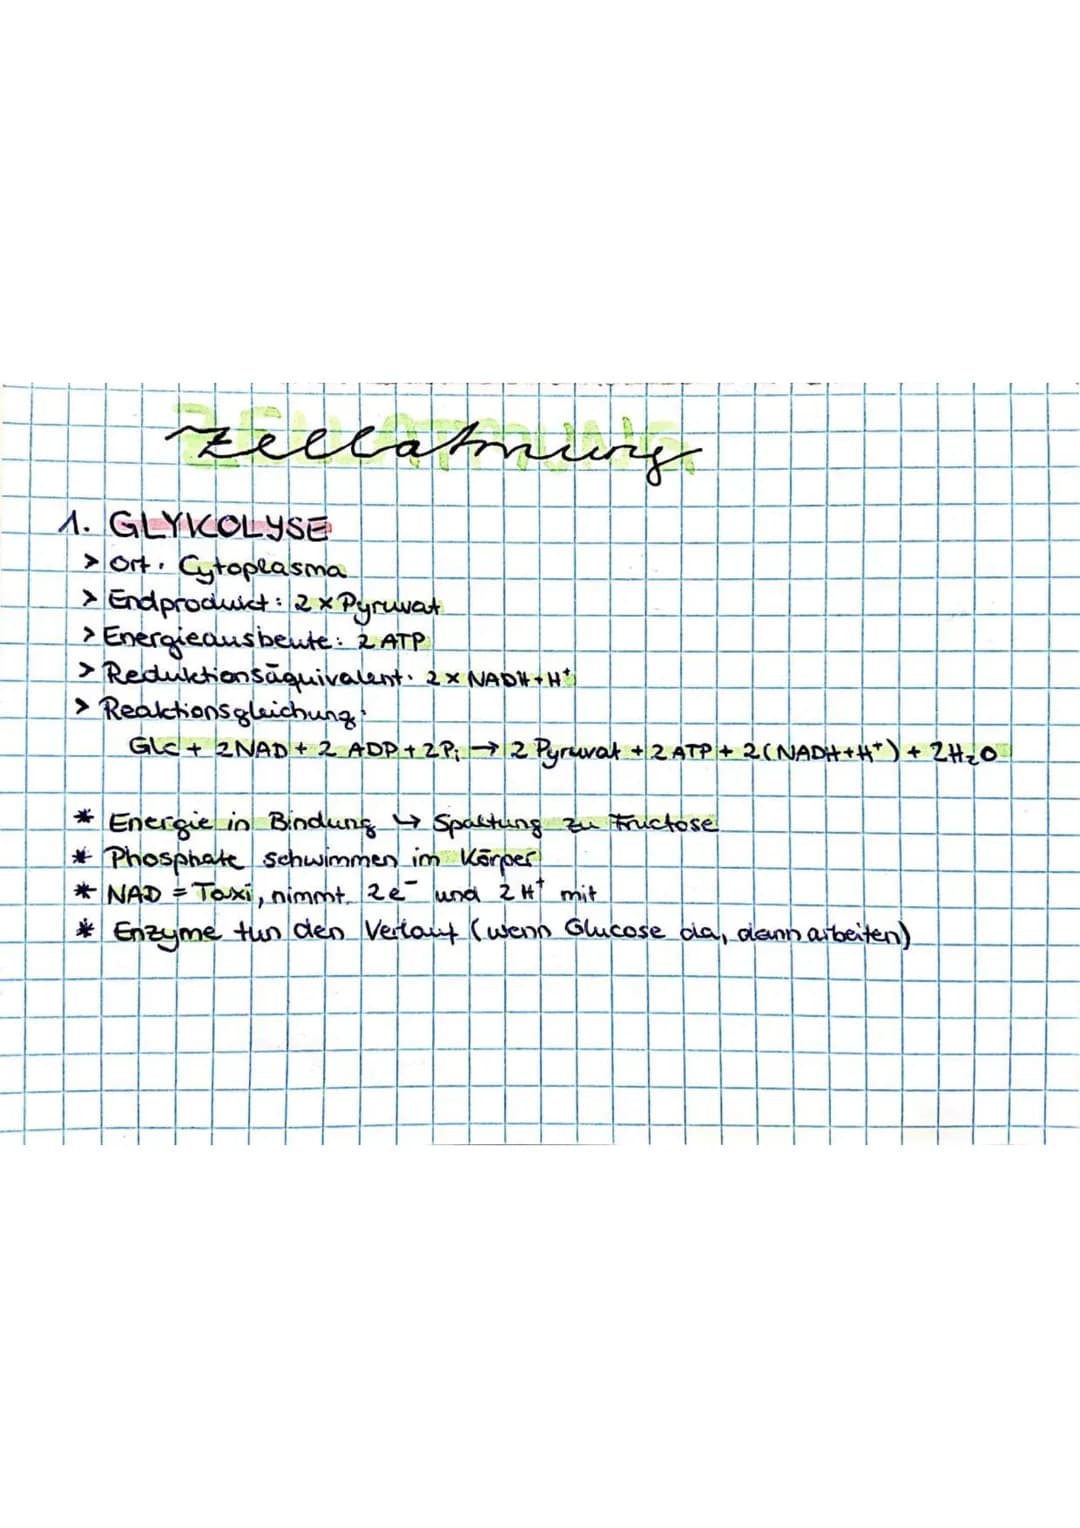 ZELLATMUNG
Zellatmung
1. GLYKOLYSE
> Ort: Cytoplasma
> Endprodukt: 2 x Pyruvat
> Energieausbeute: 2 ATP
> Reduktionsäquivalent: 2 x NADH+H⁺
> Reaktionsgleichung:
Glc + 2NAD + 2 ADP + 2Pᵢ → 2 Pyruvat + 2 ATP + 2(NADH+H⁺) + 2H₂O
* Energie in Bindung ↳ Spaltung zu Fructose
* Phosphate schwimmen im Körper
* NAD = Taxi, nimmt 2e⁻ und 2 H⁺ mit
* Enzyme tun den Verlauf (wenn Glucose da, dann arbeiten)